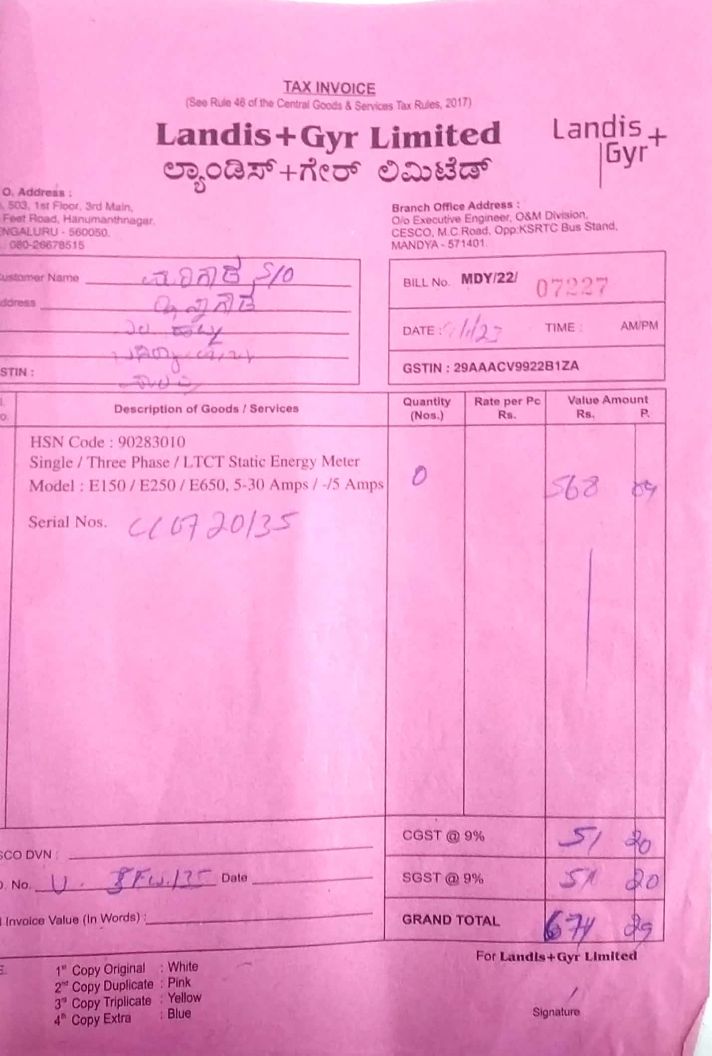 TAX INVOICE
(See Rule 46 of the Central Goods & Services Tax Rules, 2017)
Landis+Gyr Limited
ಲ್ಯಾಂಡಿಸ್+ಗೇರ್ ಲಿಮಿಟೆಡ್
Landis
Gyr+
O. Address :
503, 1st Floor, 3rd Main,
Feet Road, Hanumanthnagar,
NGALURU - 560050.
080-26678515
Branch Office Address :
O/o Executive Engineer, O&M Division,
CESCO, M.C.Road, Opp:KSRTC Bus Stand,
MANDYA - 571401.
ustomer Name S/O
ddress
STIN :
BILL No. MDY/22/ 07227
DATE : /1/23 TIME : AM/PM
GSTIN : 29AAACV9922B1ZA
Description of Goods / Services
Quantity (Nos.)
Rate per Pc Rs.
Value Amount Rs. P.
HSN Code : 90283010
Single / Three Phase / LTCT Static Energy Meter
Model : E150 / E250 / E650, 5-30 Amps / -/5 Amps 0 568
Serial Nos.
SCO DVN :
CGST @ 9% 51 20
. No. Date
SGST @ 9% 51 20
Invoice Value (In Words) :
GRAND TOTAL 671 29
For Landis+Gyr Limited
1st Copy Original : White
2nd Copy Duplicate : Pink
3rd Copy Triplicate : Yellow
4th Copy Extra : Blue
Signature